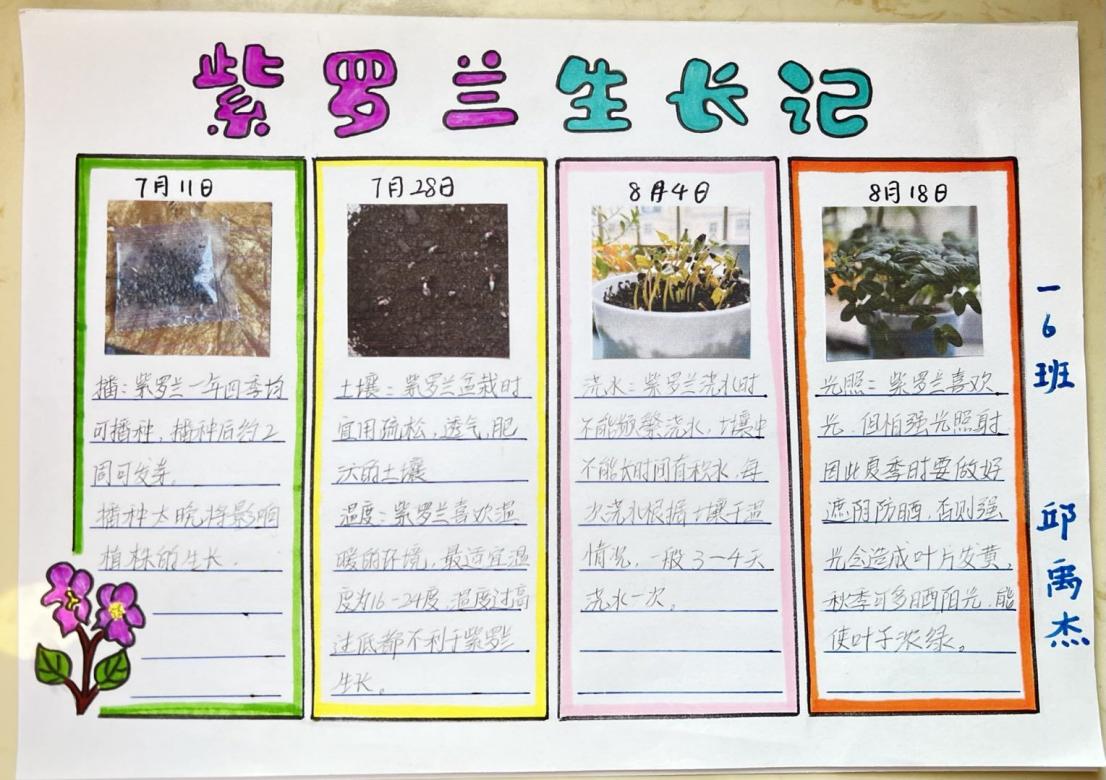 紫罗兰生长记
7月11日
播:紫罗兰一年四季均
可播种,播种后约2
周可发芽,
播种太晚将影响
植株的生长.
7月28日
土壤:紫罗兰盆栽时
宜用疏松,透气,肥
沃的土壤
温度:紫罗兰喜欢温
暖的环境,最适宜温
度为16-24度,温度过高
过低都不利于紫罗兰
生长。
8月4日
浇水:紫罗兰浇水时
不能频繁浇水,土壤中
不能长时间有积水,每
次浇水根据土壤干湿
情况,一般3-4天
浇水一次。
8月18日
光照:紫罗兰喜欢
光,但怕强光照射
因此夏季时要做好
遮阴防晒,否则强
光会造成叶片发黄,
秋季可多晒阳光,能
使叶子浓绿。
一6班
邱禹杰